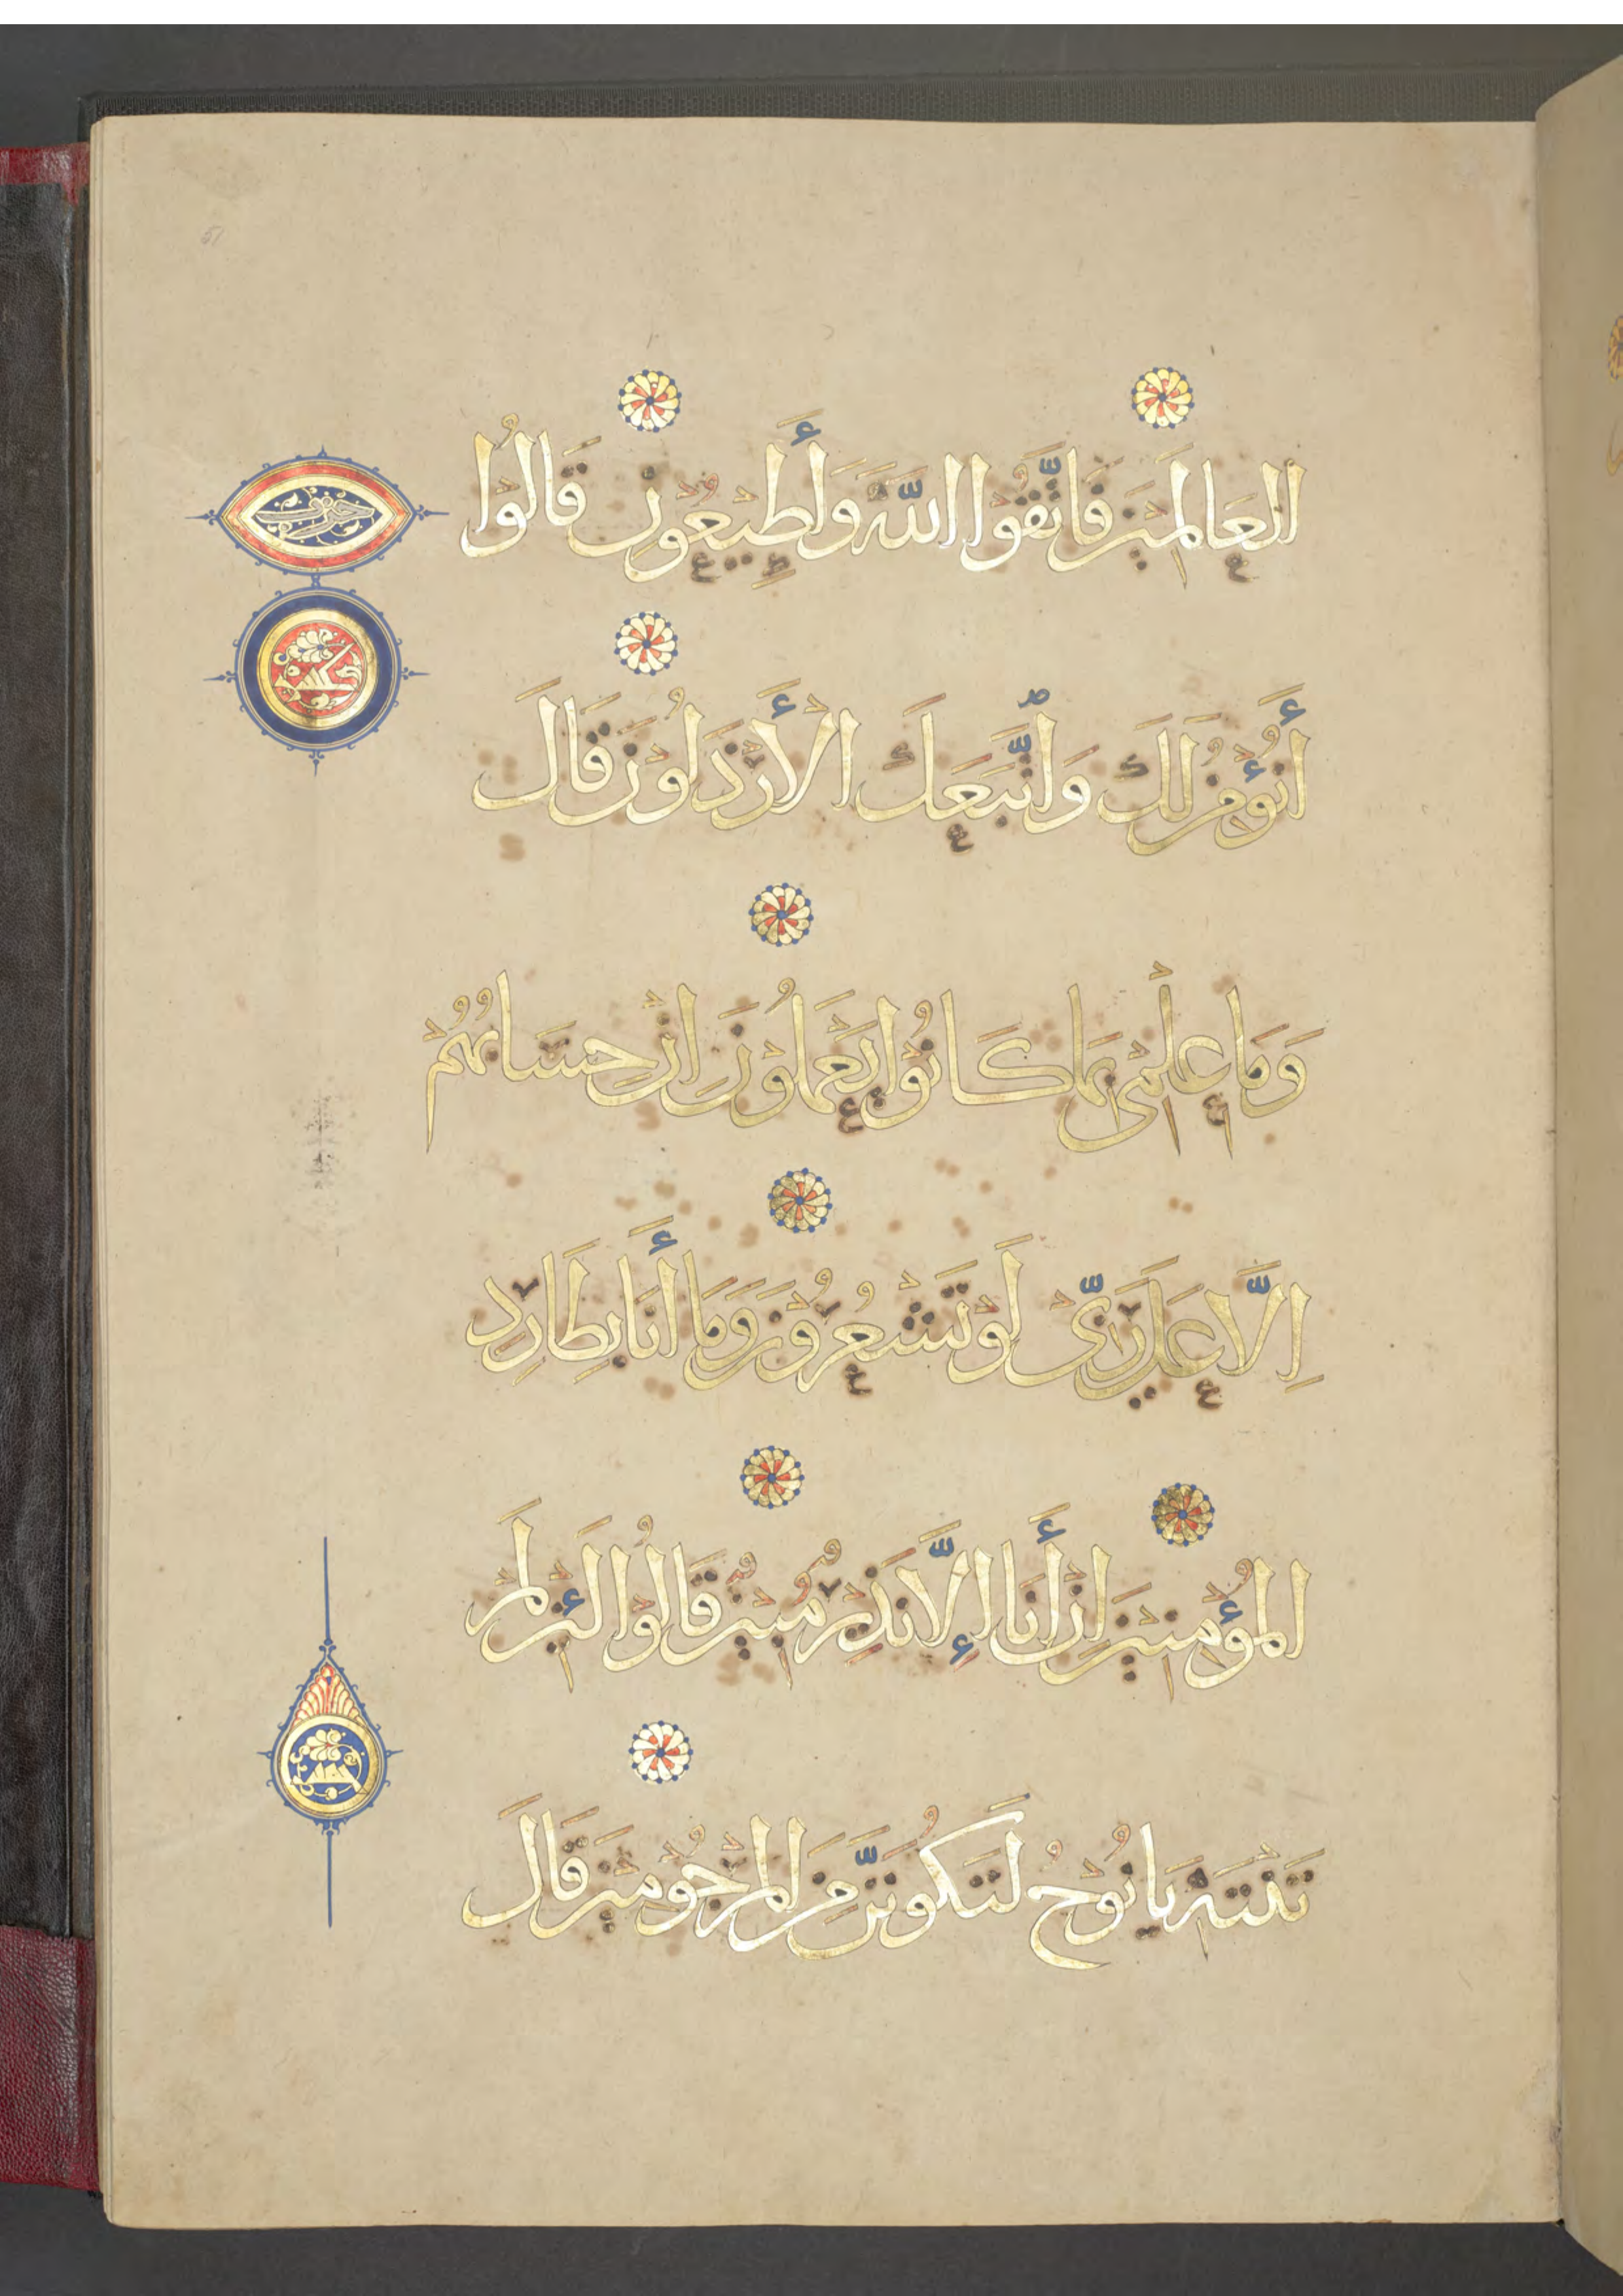 51
الْعَالَمِينَ فَاتَّقُوا اللَّهَ وَأَطِيعُونِ قَالُوْا
أَنُؤْمِنُ لَكَ وَاتَّبَعَكَ الْأَرْذَلُوْنَ قَالَ
وَمَا عِلْمِيْ بِمَا كَانُوْا يَعْمَلُوْنَ اِنْ حِسَابُهُمْ
اِلَّا عَلَى رَبِّيْ لَوْ تَشْعُرُوْنَ وَمَا أَنَا بِطَارِدِ
الْمُؤْمِنِيْنَ اِنْ أَنَا إِلَّا نَذِيْرٌ مُبِيْنٌ قَالُوْا لَئِنْ لَمْ
تَنْتَهِ يَا نُوْحُ لَتَكُوْنَنَّ مِنَ الْمَرْجُوْمِيْنَ قَالَ
حزب